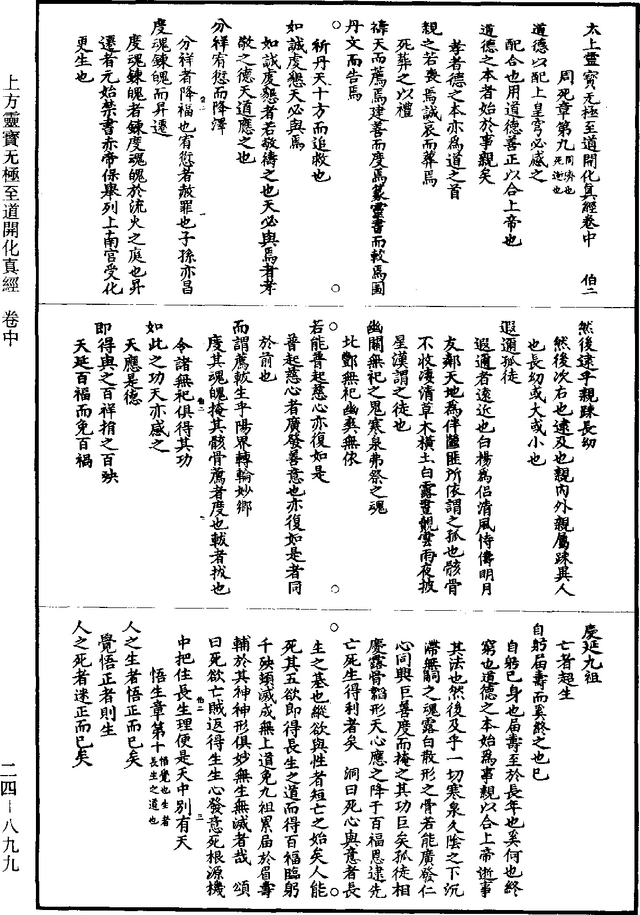 太上靈寶无極至道開化真經卷中 伯二
周死章第九 周濟也死逝也
道德以配上皇穹必感之
配合也用道德善正以合上帝也
道德之本者始於事親矣
孝者德之本亦為道之首
親之若喪焉誠哀而葬焉
死葬之以禮
禱天而薦焉建善而度焉篆靈書而赦焉囯
丹文而告焉
祈丹天十方而追救也
如誠虔懇天必與焉
如誠虔懇者若敬禱之也天必與焉者孝
敬之德天道應之也
分祥宥愆而降澤
分祥者降福也宥愆者赦罪也子孫亦昌
度魂鍊魄而昇遷
度魂鍊魄者鍊度魂魄於流火之庭也昇
遷者元始禁書赤帝保舉列上南宮受化
更生也
然後逮乎親踈長幼
然後次右也逮及也親內外親屬踈異人
也長幼或大或小也
遐邇孤徒
遐邇者遠近也白楊為侶清風侍儔明月
友鄰天地為伴靈匪所依謂之孤也骸骨
不收淒清草木橫土白露晝觀雲雨夜披
星漢謂之徒也
幽關無祀之鬼寒泉弗祭之魂
北酆無祀幽爽無依
若能普起慈心亦復如是
普起慈心者廣發善意也亦復如是者同
於前也
而謂薦軷生乎陽界轉輪妙鄉
度其魂魄掩其骸骨薦者度也軷者拔也
令諸無祀俱得其功
如此之功天亦感之
天應是德
即得與之百祥捐之百殃
天延百福而免百禍
慶延九祖
亡者超生
自躬屆壽而奚終之也已
自躬己身也屆壽至於長年也奚何也終
窮也道德之本始為事親以合上帝逝事
其法也然後及乎一切寒泉久陰之下沉
滯無嗣之魂露白散形之骨若能廣發仁
心同興巨善度而掩之其功巨矣孤徒相
慶露骨韜形天心應之降于百福恩逮先
亡死生得利者矣 洞曰死心與意者長
生之基也縱欲與性者短亡之始矣人能
死其五欲即得長生之道而得百福臨躬
千殃頓滅成無上道免九祖累屆於眉壽
輔於其神神形俱妙無生無滅者哉 頌
曰死欲亡賊返得生生心發意死根源機
中把住長生理便是天中別有天
悟生章第十 悟覺也生者長生之道也
人之生者悟正而已矣
覺悟正者則生
人之死者迷正而已矣
上方靈寶无極至道開化真經 卷中
二四－八九九